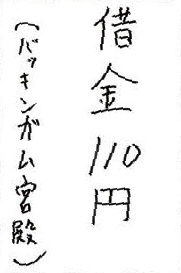 借金110円
（バッキンガム宮殿）